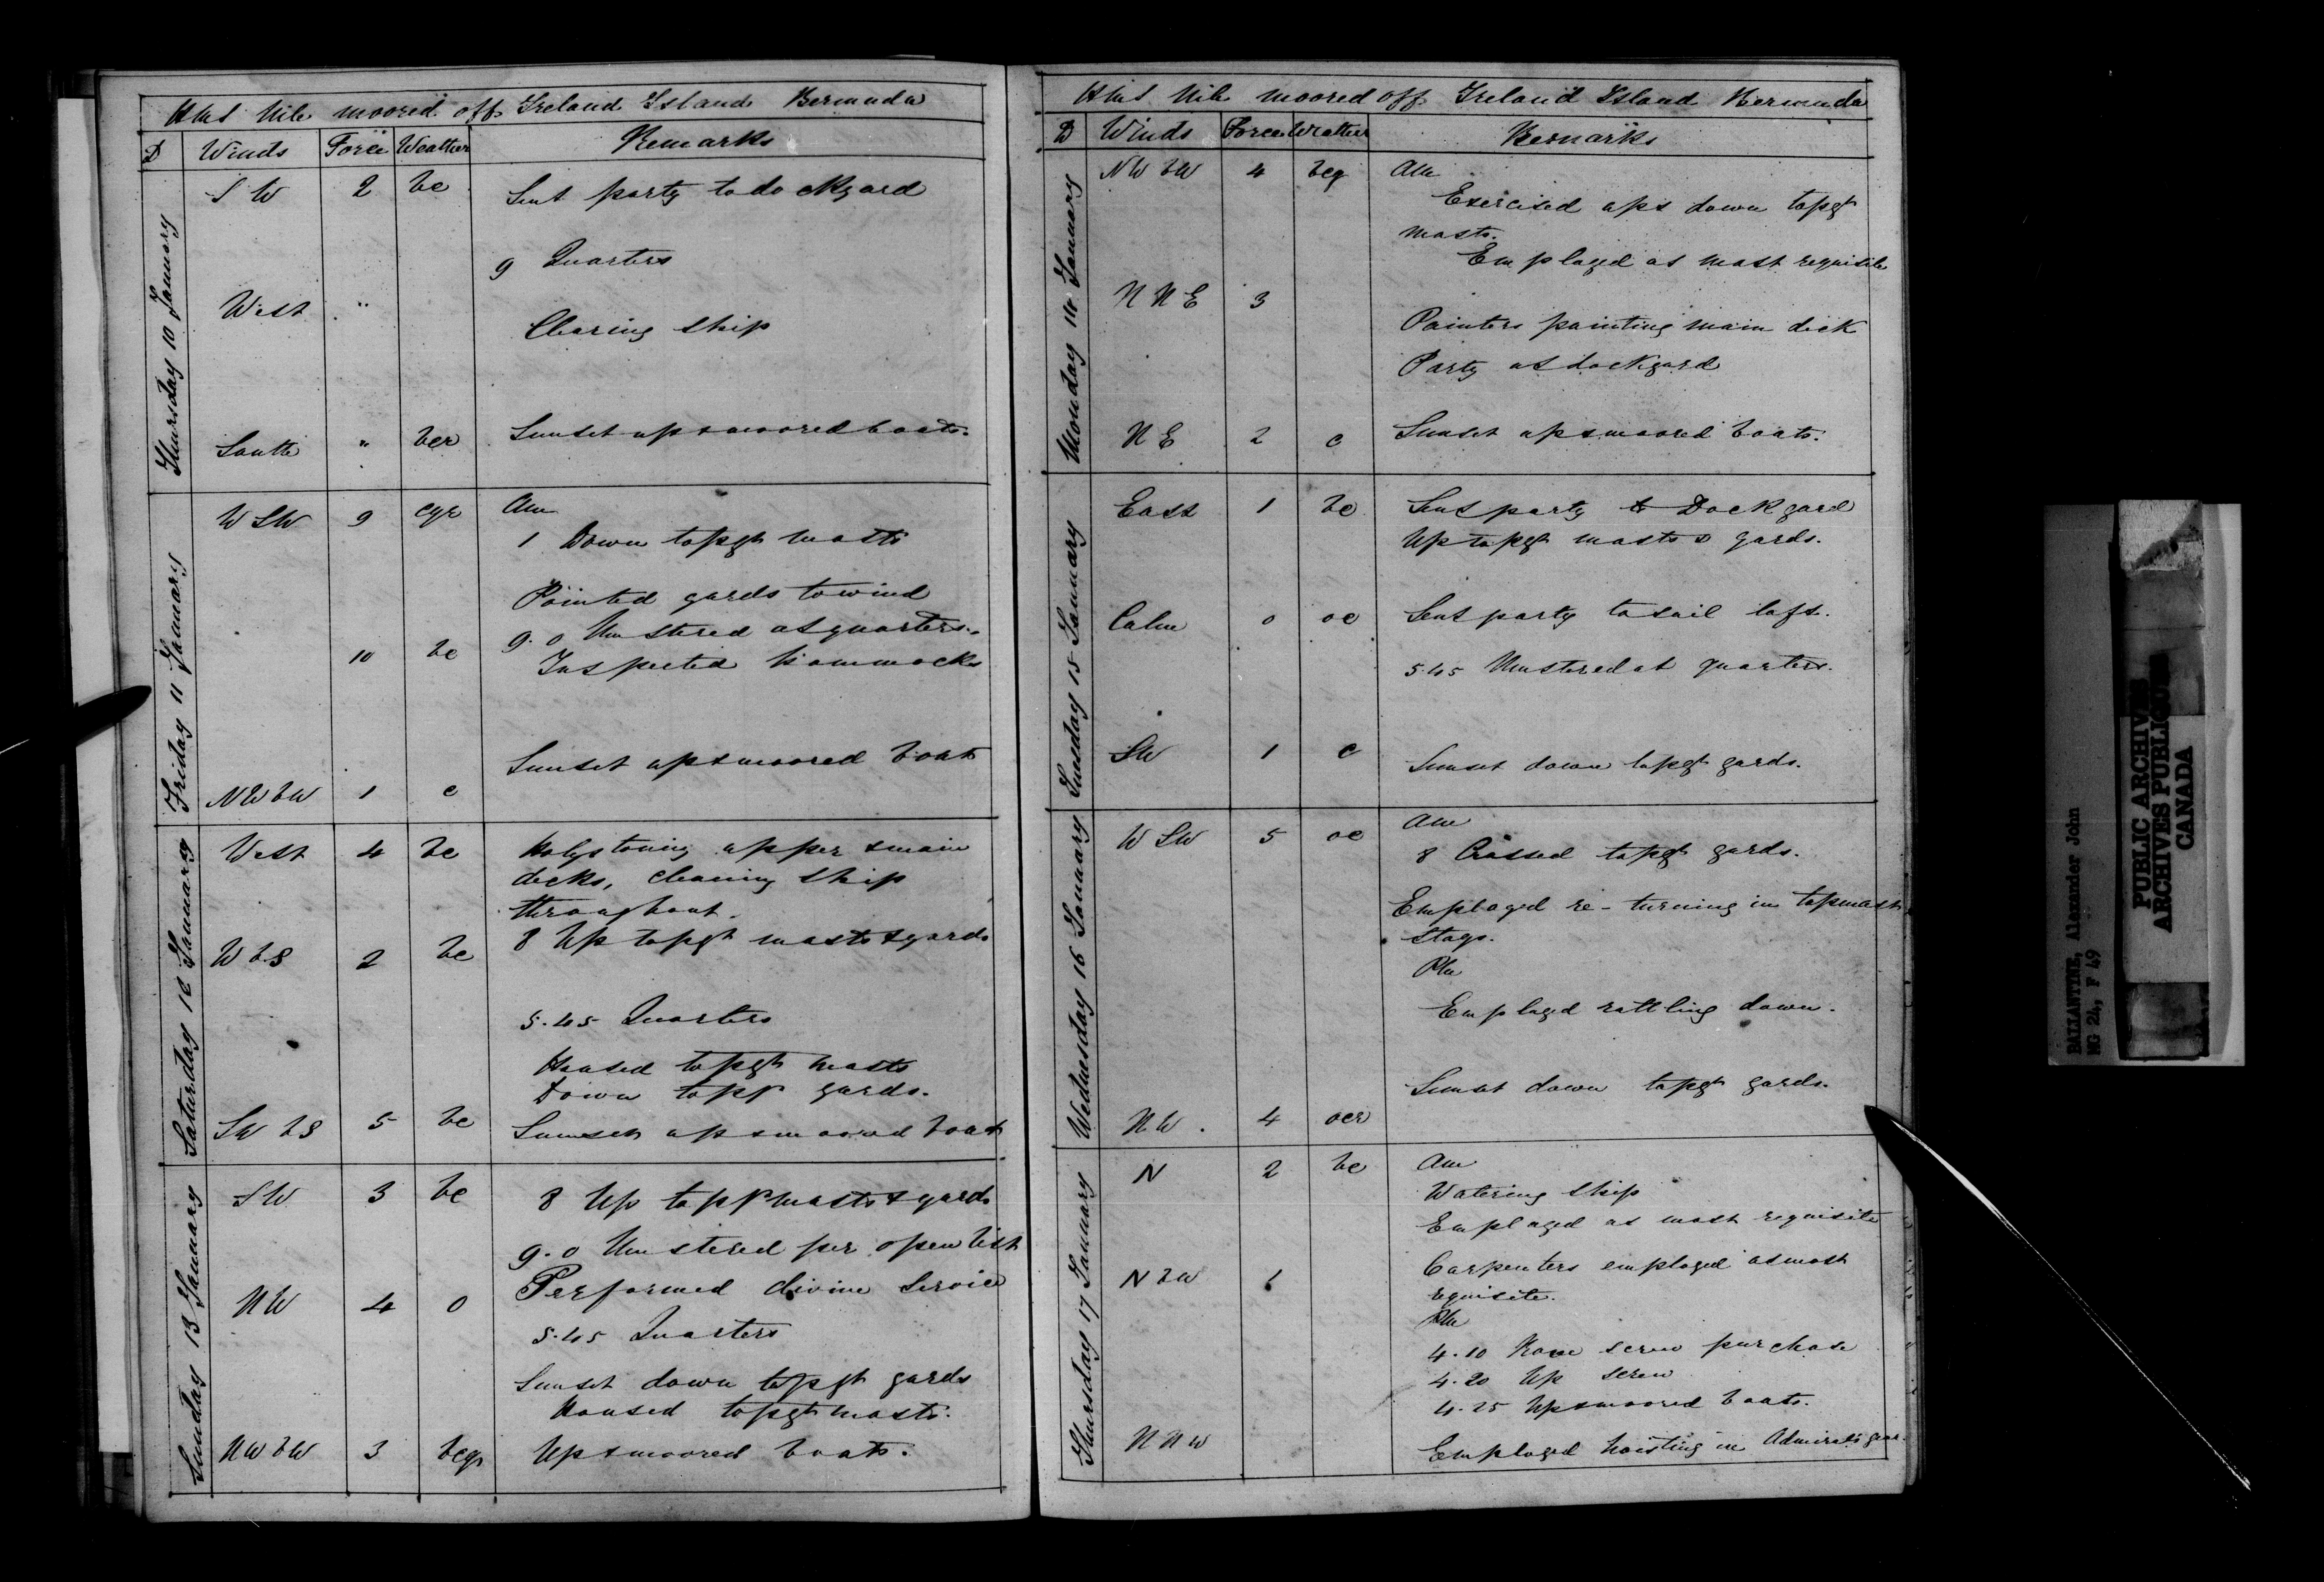 HMS Nile moored off Ireland Island Bermuda
D Winds Force Weather Remarks
Thursday 10 January
SW 2 bc Sent party to dockyard
9 Quarters
West "
Cleaning ship
South " bcr Sunset up & moored boats.
Friday 11 January
WSW 9 cqr Am
1 Down topgt masts
Pointed yards to wind
9.0 Mustered at quarters.
10 bc Inspected hammocks
Sunset up & moored boats
NWbW 1 c
Saturday 12 January
West 4 bc Holystoning upper & main
decks, cleaning ship
throughout.
8 Up topgt masts & yards
WbS 2 bc
5.45 Quarters
Housed topgt masts
Down topgt yards.
SWbS 5 bc Sunset up & moored boats
Sunday 13 January
SW 3 bc 8 Up topgt masts & yards
9.0 Mustered per open list
NW 4 o Performed divine Service
5.45 Quarters
Sunset down topgt yards
Housed topgt masts.
NWbW 3 bcqr Up & moored boats.
HMS Nile moored off Ireland Island Bermuda
D Winds Force Weather Remarks
Monday 14 January
NWbW 4 bcq Am
Exercised up & down topgt
masts.
Employed as most requisite
NNE 3
Painters painting main deck
Party at dockyard
NE 2 c Sunset up & moored boats.
Tuesday 15 January
East 1 bc Sent party to Dockyard
Up topgt masts & yards.
Calm 0 oc Sent party to sail loft.
5.45 Mustered at quarters.
SW 1 c Sunset down topgt yards.
Wednesday 16 January
WSW 5 oc Am
8 Crossed topgt yards.
Employed re-turning in topmast
stays.
Pm
Employed rattling down.
Sunset down topgt yards.
NW. 4 ocr
Thursday 17 January
N 2 bc Am
Watering ship
Employed as most requisite
Carpenters employed as most
NbW 1
requisite.
Pm
4.10 Rove screw purchase
4.20 Up screw
4.25 Up & moored boats.
NNW Employed hoisting in Admirals gear.
BALLANTINE, Alexander John
MG 24, F 49
PUBLIC ARCHIVES
ARCHIVES PUBLIQUES
CANADA